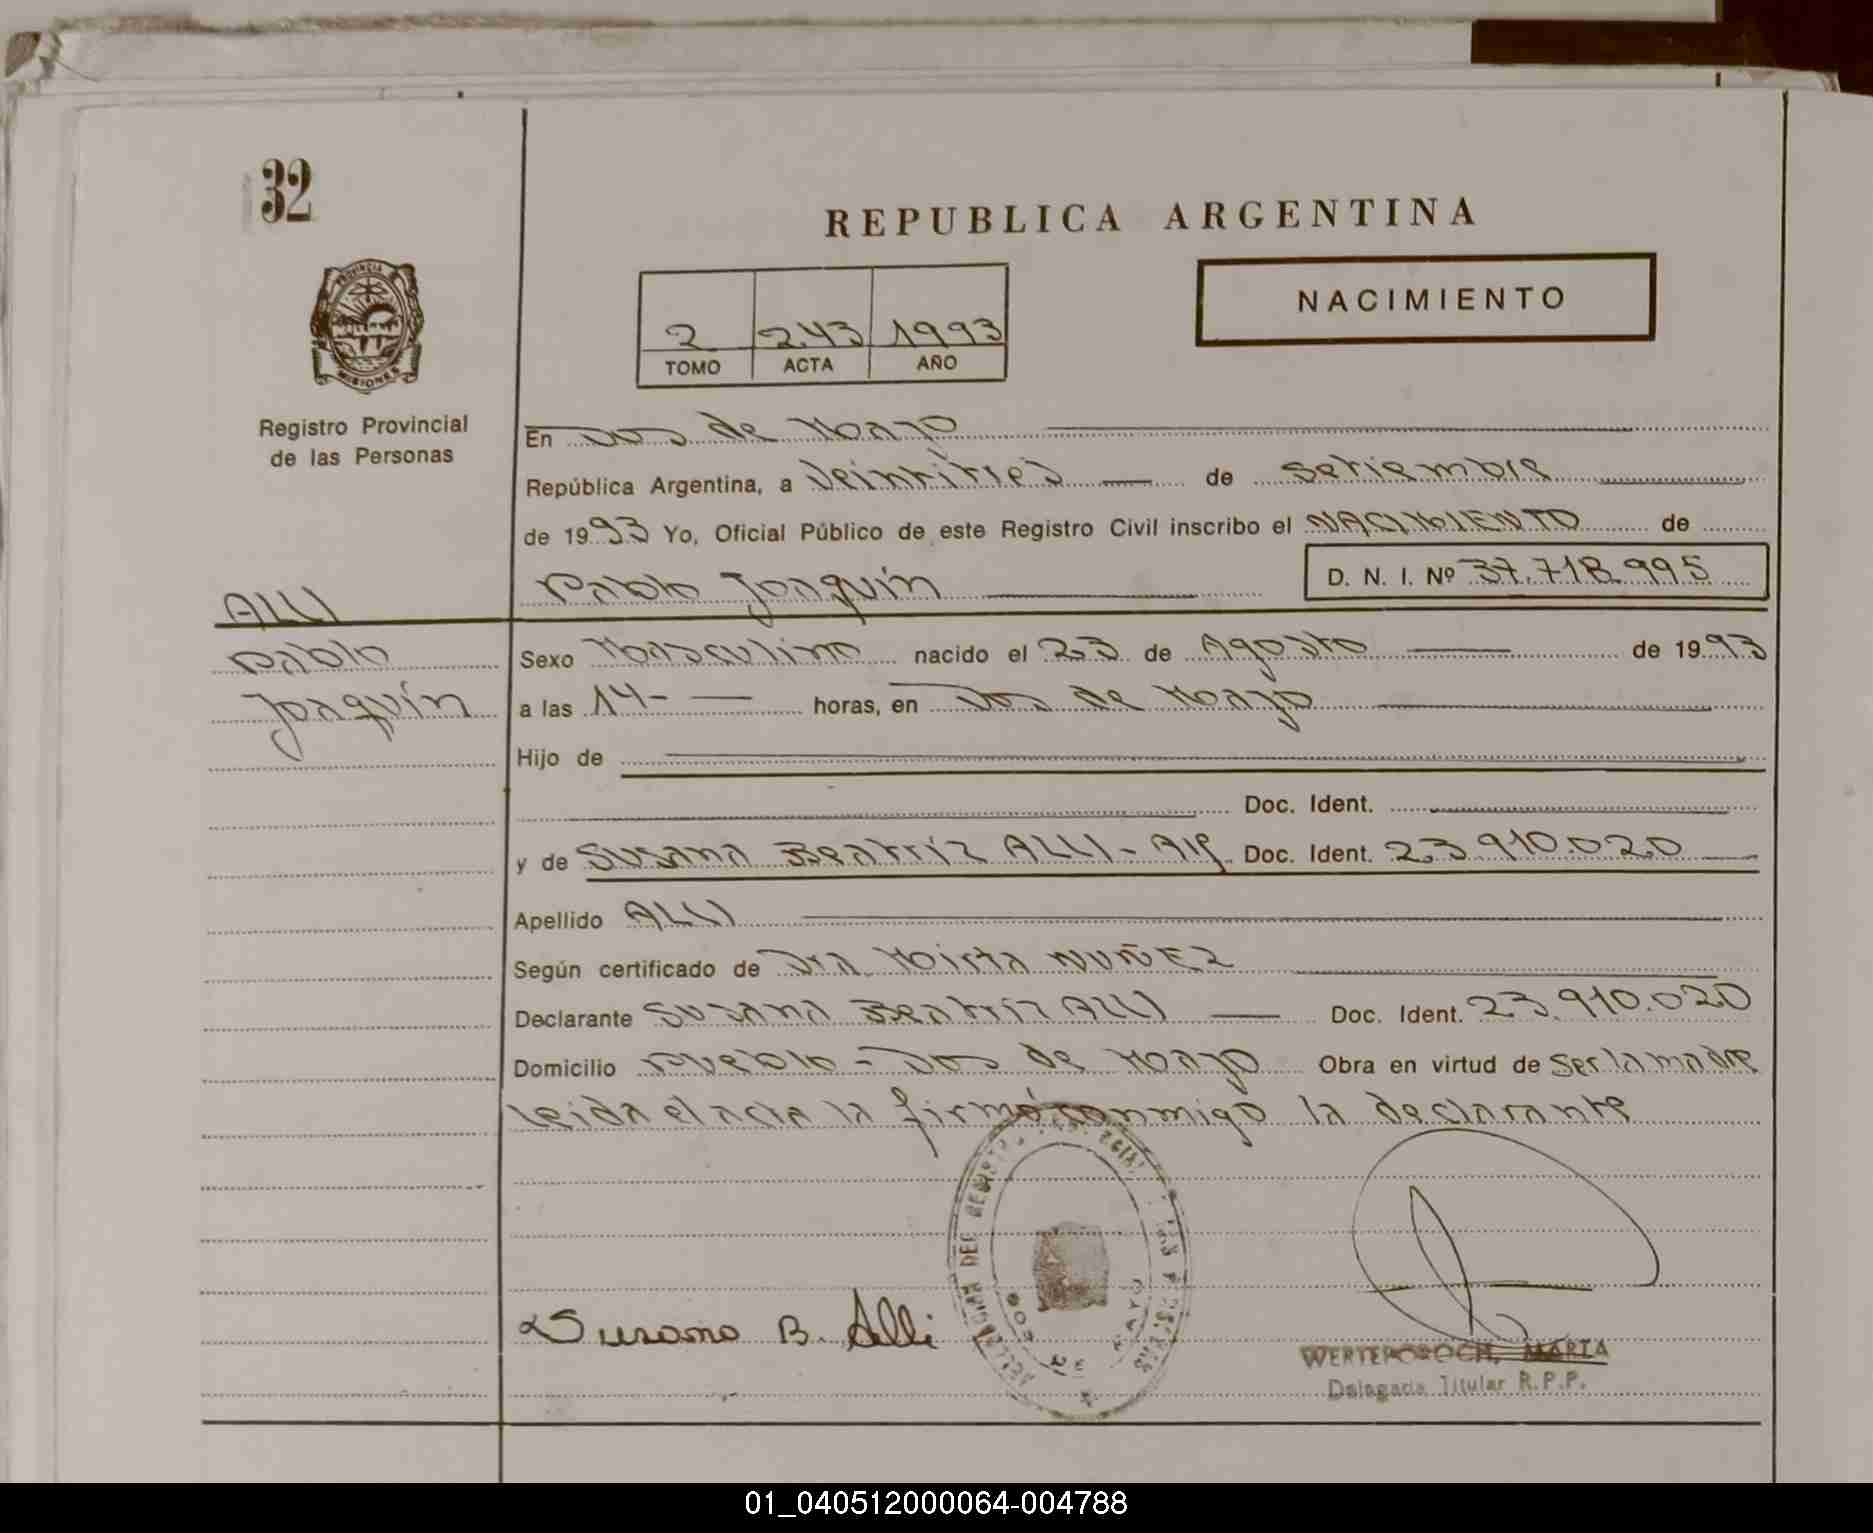 32
REPUBLICA ARGENTINA
NACIMIENTO
2 243 1993
TOMO ACTA AÑO
PROVINCIA
MISIONES
Registro Provincial
de las Personas
En Dos de Mayo
República Argentina, a Veintitres de Setiembre
de 1993 Yo, Oficial Público de este Registro Civil inscribo el NACIMIENTO de
Pablo Joaquín D. N. I. Nº 37.718.995
ALLI
Pablo
Joaquín
Sexo Masculino nacido el 23 de Agosto de 1993
a las 14- horas, en Dos de Mayo
Hijo de
Doc. Ident.
y de Susana Beatríz ALLI - Arg. Doc. Ident. 23.910.020
Apellido ALLI
Según certificado de Dra. Mirta NUÑEZ
Declarante Susana Beatríz ALLI Doc. Ident. 23.910.020
Domicilio Pueblo - Dos de Mayo Obra en virtud de ser la madre
leida el acta la firmó conmigo la declarante
Susana B. Alli
WERTEPOROCH, MARIA
Delegada Titular R.P.P.
01_040512000064-004788